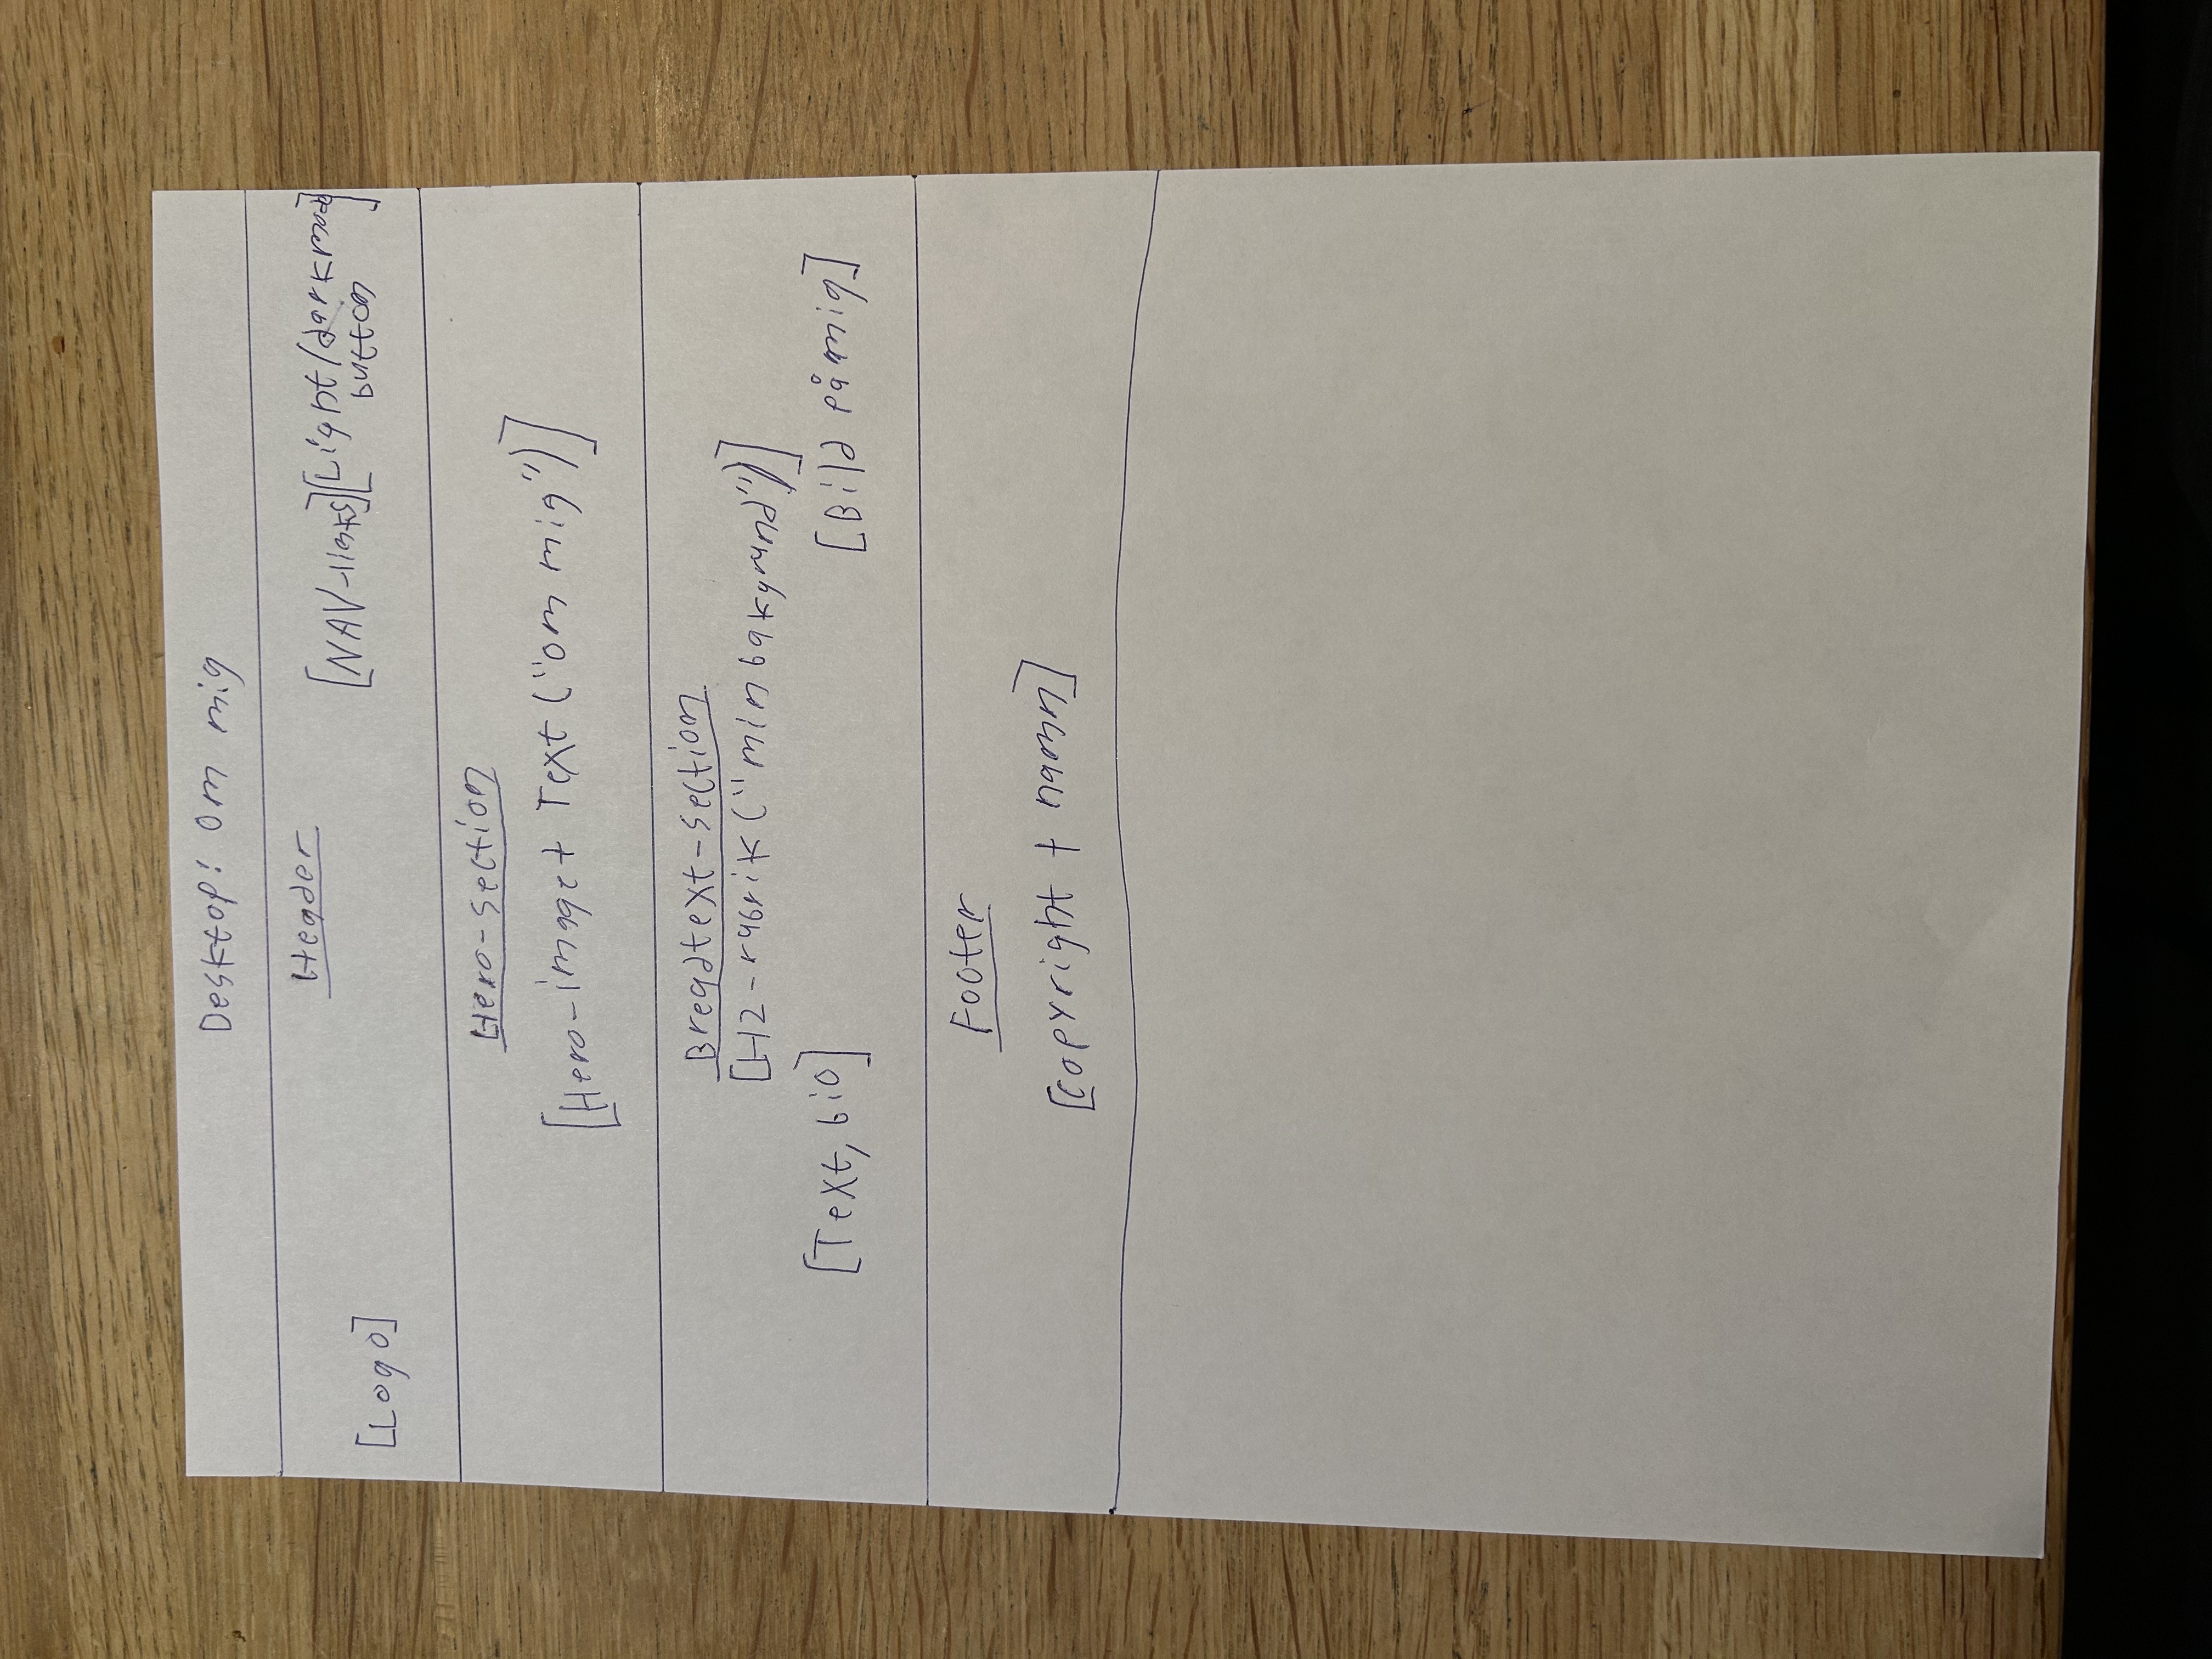 Desktop: Om mig
Header
[Logo] [NAV-links] [Light/darkmode
button]
Hero-section
[Hero-image + Text ("om mig")]
Breadtext-section
[H2-rubrik ("min bakgrund")]
[Text, bio] [Bild på mig]
Footer
[copyright + namn]